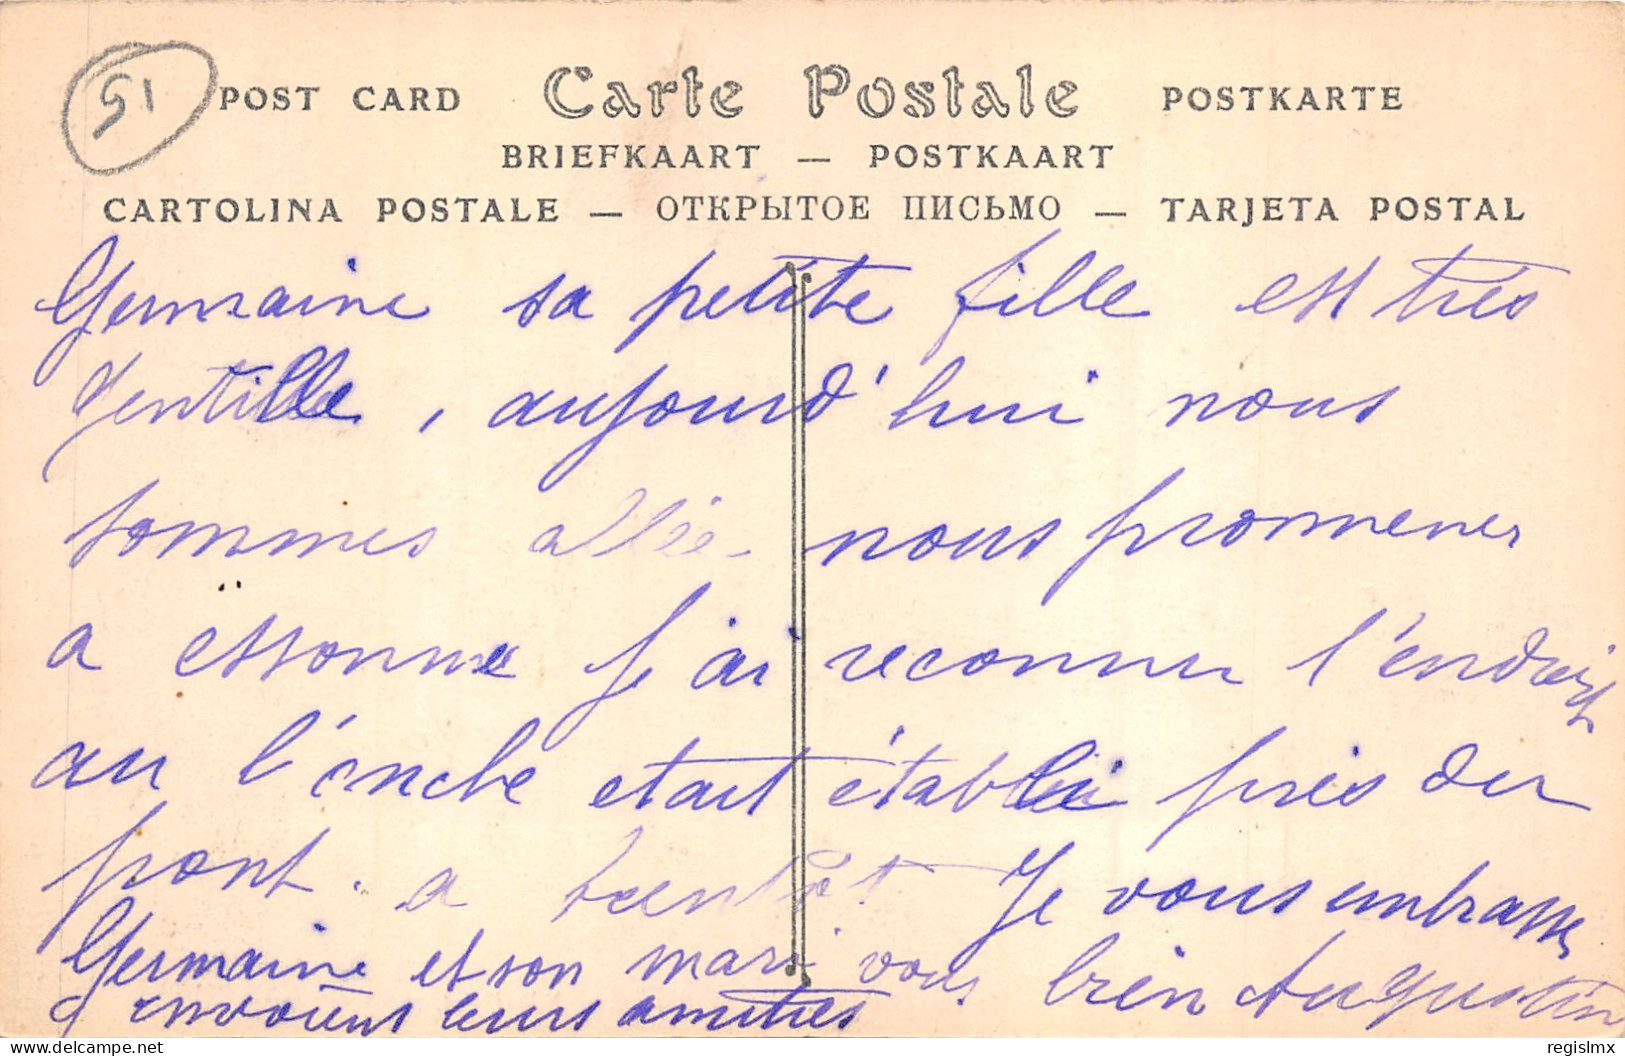 51
POST CARD Carte Postale POSTKARTE
BRIEFKAART — POSTKAART
CARTOLINA POSTALE — ОТКРЫТОЕ ПИСЬМО — TARJETA POSTAL
Germaine sa petite fille est très
gentille, aujourd'hui nous
sommes allée nous promener
a essonne J'ai reconnu l'endroit
au l'oncle etait établi près du
pont. a bientôt Je vous embrasse
Germaine et son mari vous bien Augustin
envoient leurs amitiés
delcampe.net
regislmx